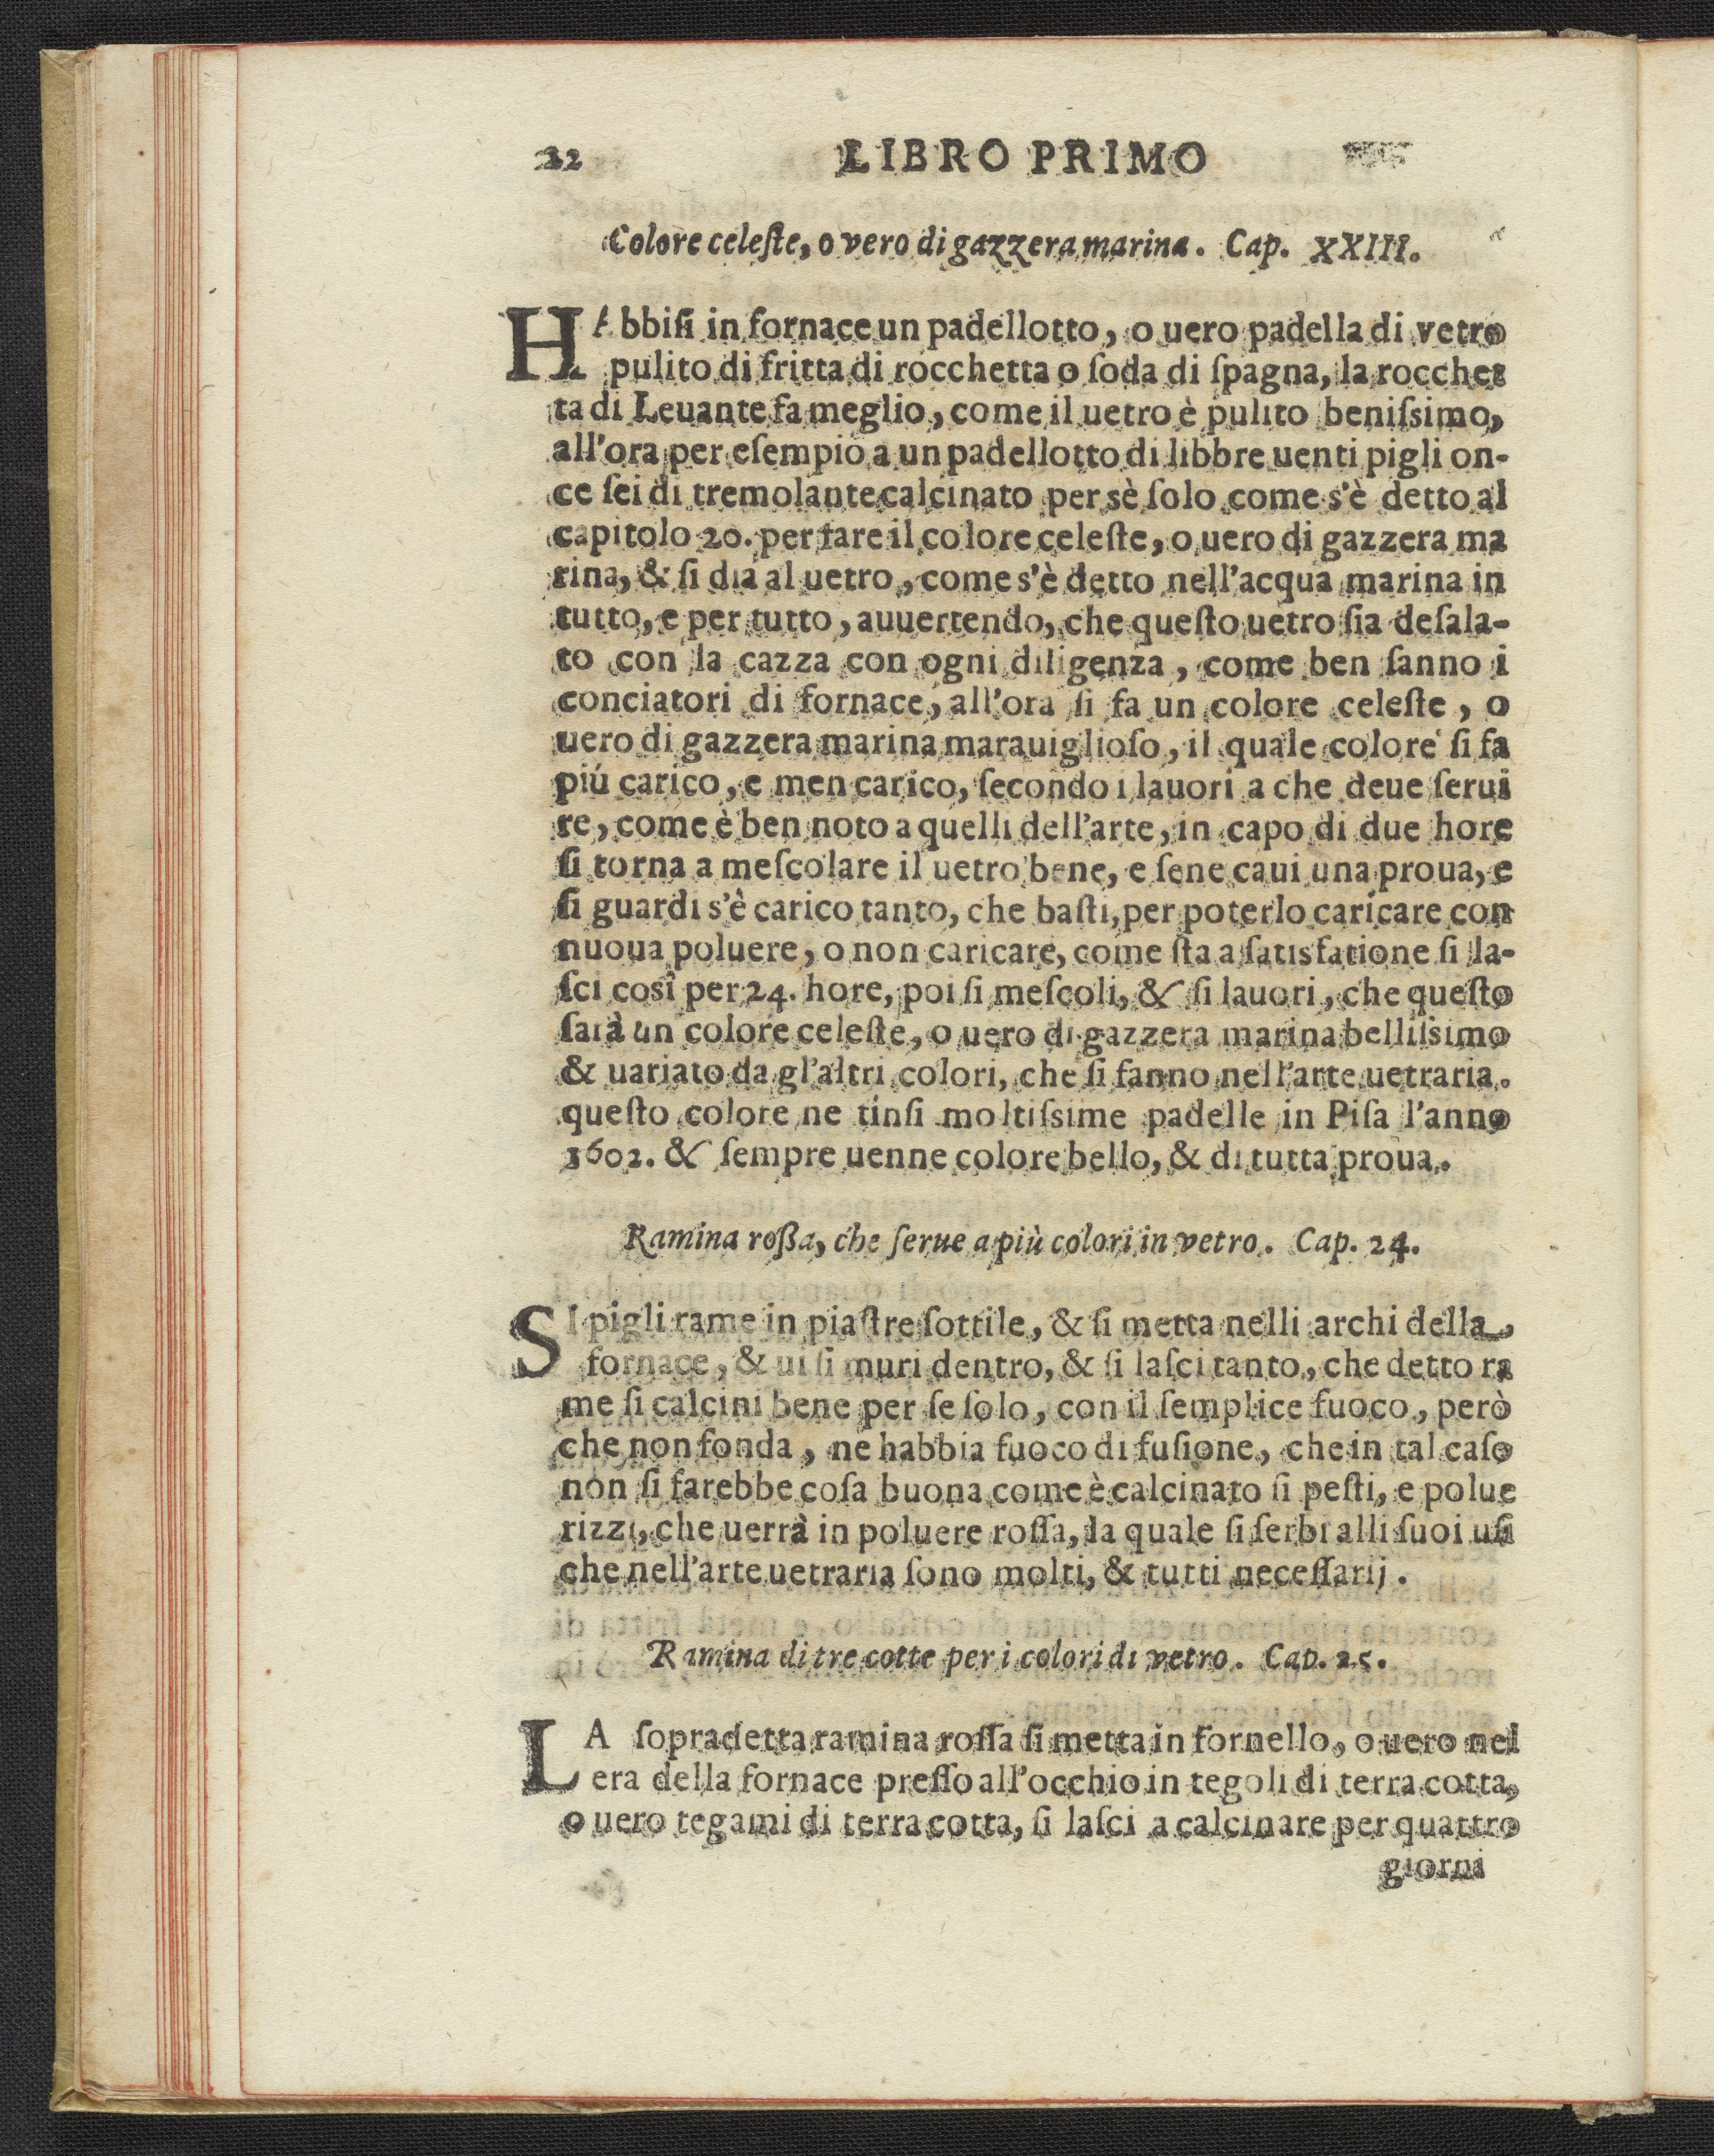 22 LIBRO PRIMO
Colore celeſte, o vero di gazzera marina. Cap. XXIII.
HAbbiſi in fornace un padellotto, o uero padella di vetro
pulito di fritta di rocchetta o ſoda di ſpagna, la rocchet
ta di Leuante fa meglio, come il uetro è pulito beniſsimo,
all'ora per eſempio a un padellotto di libbre uenti pigli on-
ce ſei di tremolante calcinato per sè ſolo come s'è detto al
capitolo 20. per fare il colore celeſte, o uero di gazzera ma
rina, & ſi dia al uetro, come s'è detto nell'acqua marina in
tutto, e per tutto, auuertendo, che queſto uetro ſia deſala-
to con la cazza con ogni diligenza, come ben ſanno i
conciatori di fornace, all'ora ſi fa un colore celeſte, o
uero di gazzera marina marauiglioſo, il quale colore ſi fa
piú carico, e men carico, ſecondo i lauori a che deue ſerui
re, come è ben noto a quelli dell'arte, in capo di due hore
ſi torna a meſcolare il uetro bene, e ſene caui una proua, e
ſi guardi s'è carico tanto, che baſti, per poterlo caricare con
nuoua poluere, o non caricare, come ſta a ſatisfatione ſi la-
ſci cosî per 24. hore, poi ſi meſcoli, & ſi lauori, che queſto
ſarà un colore celeſte, o uero di gazzera marina belliſsimo
& uariato da gl'altri colori, che ſi fanno nell'arte uetraria.
queſto colore ne tinſi moltiſsime padelle in Piſa l'anno
1602. & ſempre uenne colore bello, & di tutta proua.
Ramina roßa, che ſerue a più colori in vetro. Cap. 24.
SI pigli rame in piaſtre ſottile, & ſi metta nelli archi della,
fornace, & ui ſi muri dentro, & ſi laſci tanto, che detto ra
me ſi calcini bene per ſe ſolo, con il ſemplice fuoco, però
che non fonda, ne habbia fuoco di fuſione, che in tal caſo
non ſi farebbe coſa buona come è calcinato ſi peſti, e polue
rizzi, che uerrà in poluere roſſa, la quale ſi ſerbi alli ſuoi uſi
che nell'arte uetraria ſono molti, & tutti neceſſarij.
Ramina di tre cotte per i colori di vetro. Cap. 25.
LA ſopradetta ramina roſſa ſi metta in fornello, o uero nel
era della fornace preſſo all'occhio in tegoli di terra cotta,
o uero tegami di terra cotta, ſi laſci a calcinare per quattro
giorni